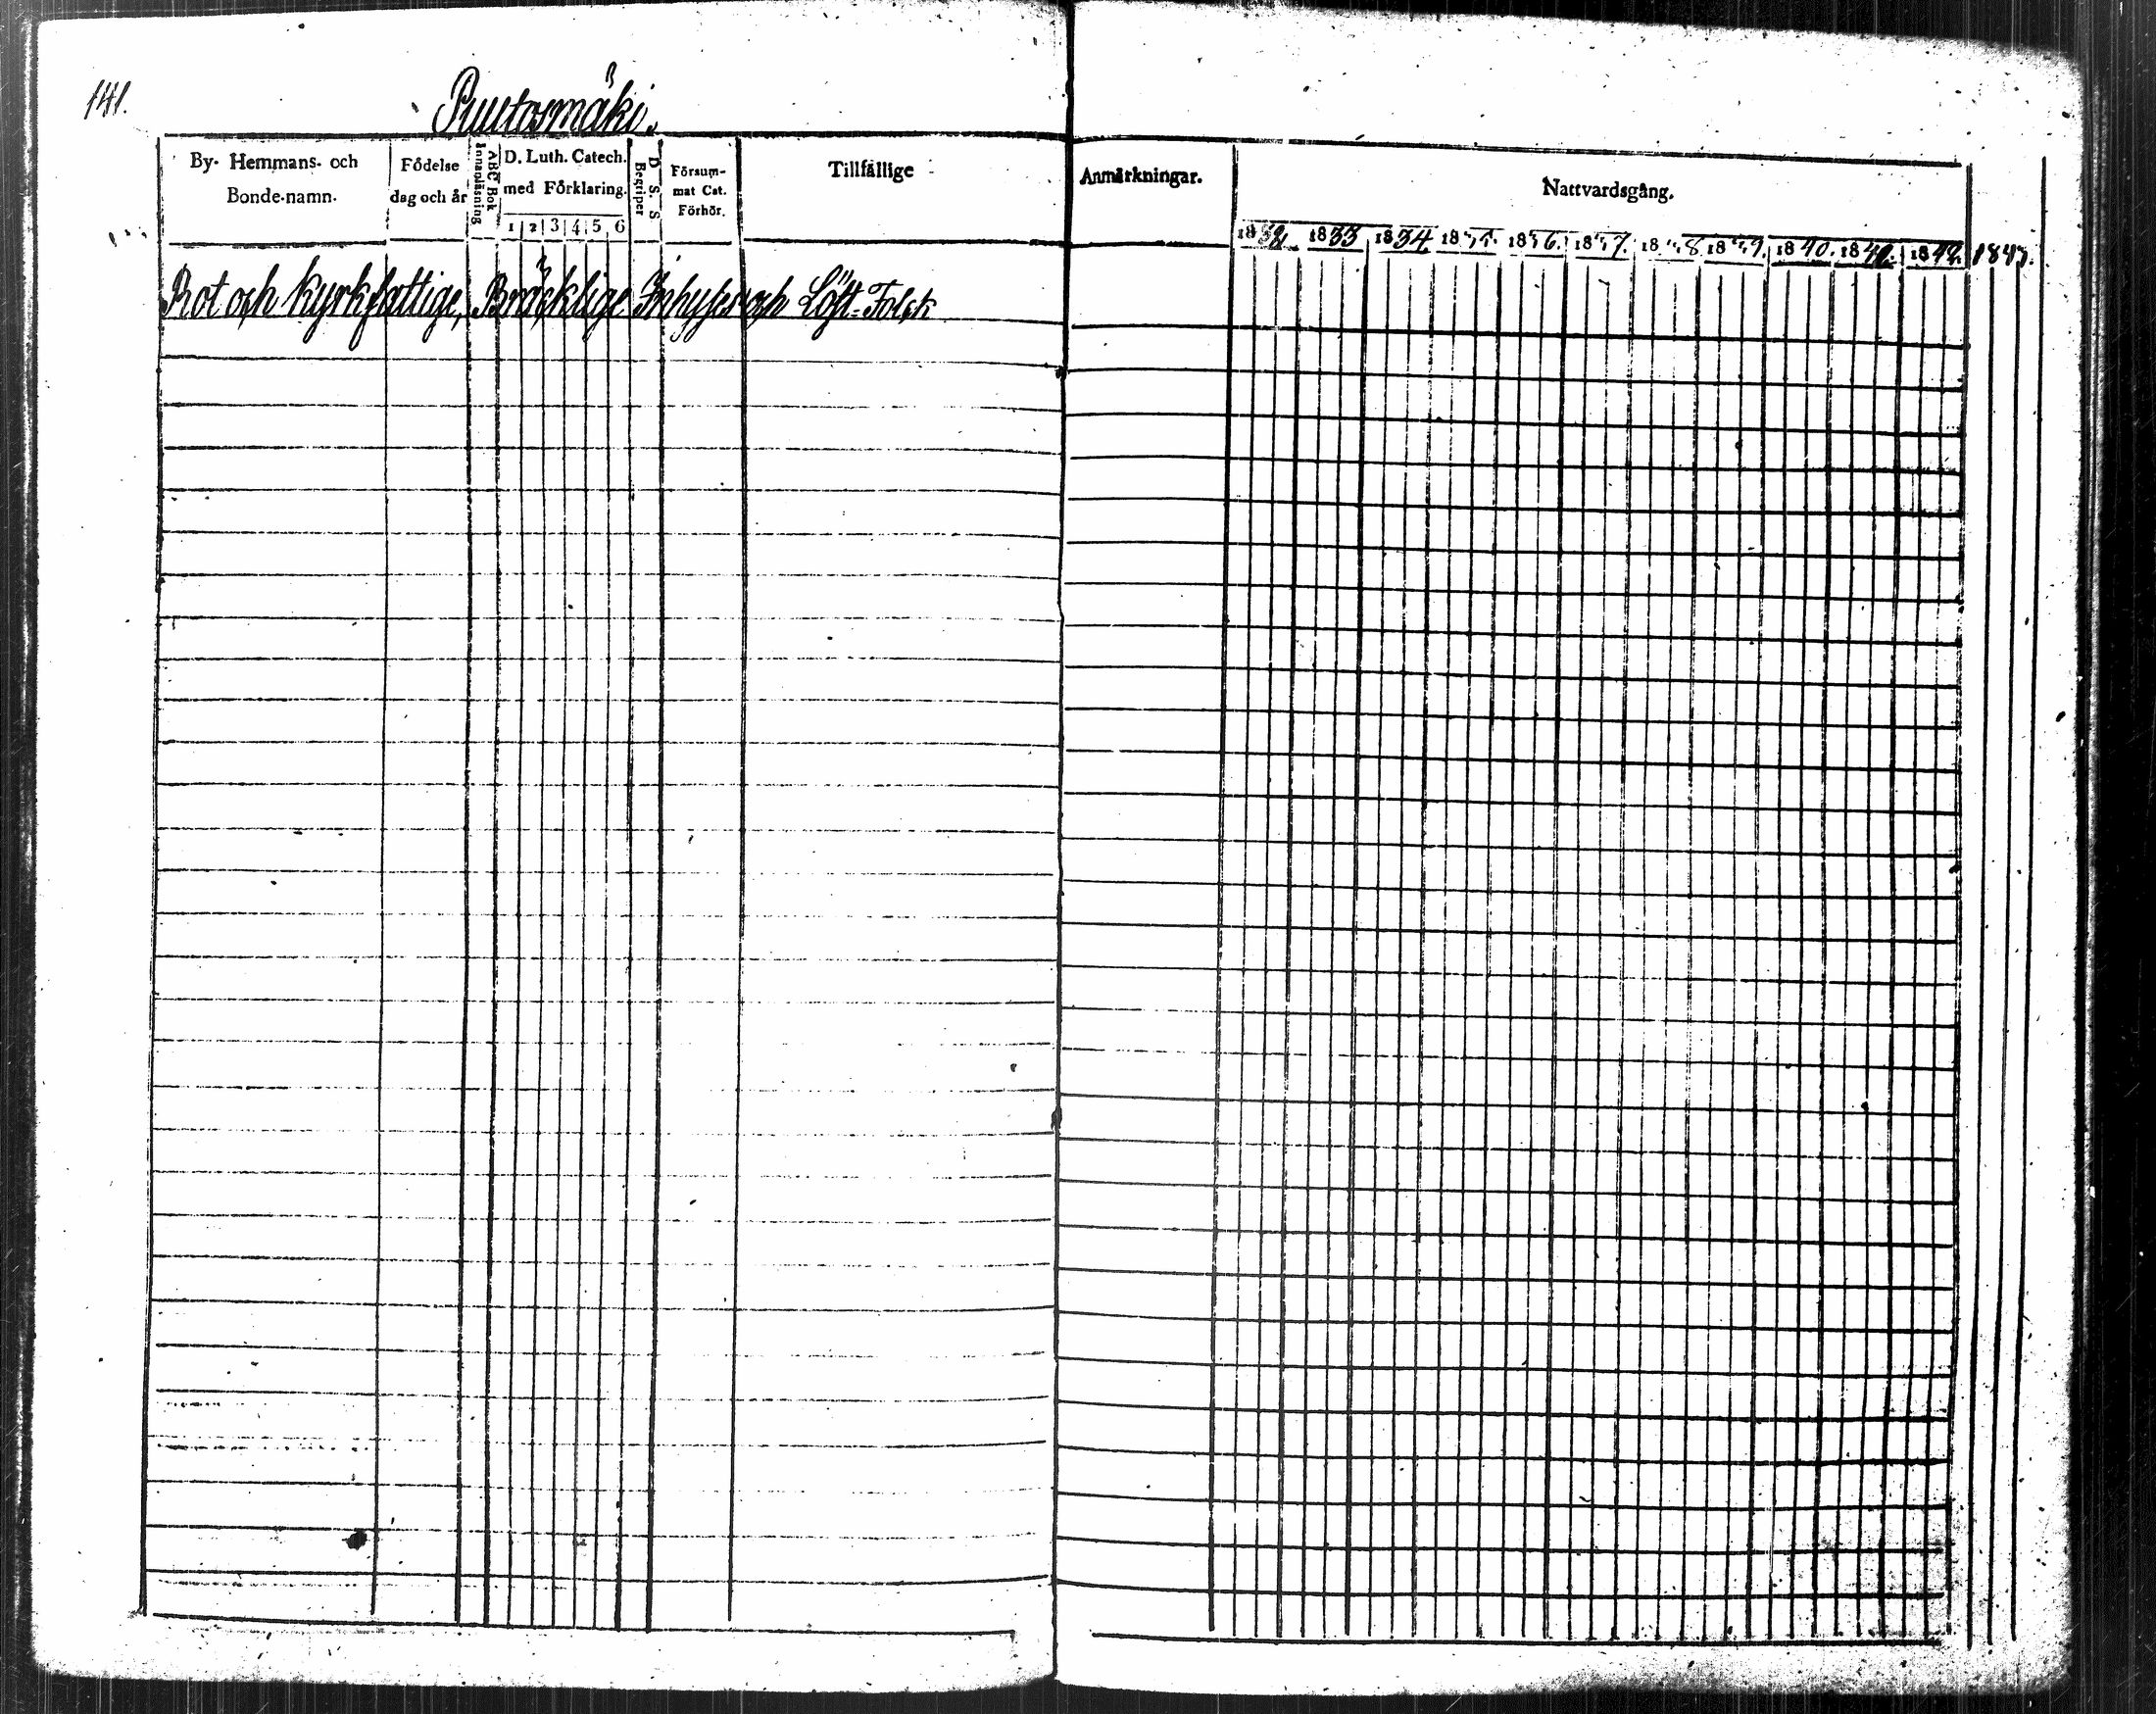 141.
Puutosmäki.
By- Hemmans- och
Bonde-namn.
Födelse
dag och år
ABC Bok
Innanläsning
D. Luth. Catech.
med Förklaring.
1 2 3 4 5 6
D. S. S
Begriper
Försum-
mat Cat.
Förhör.
Tillfällige
Anmärkningar.
Nattvardsgång.
1832 1833 1834 1835. 1836. 1837. 1838 1839. 1840. 1841. 1842. 1843.
Rot och Kyrkfattige, Bräcklige Inhyses och Löst-Folck